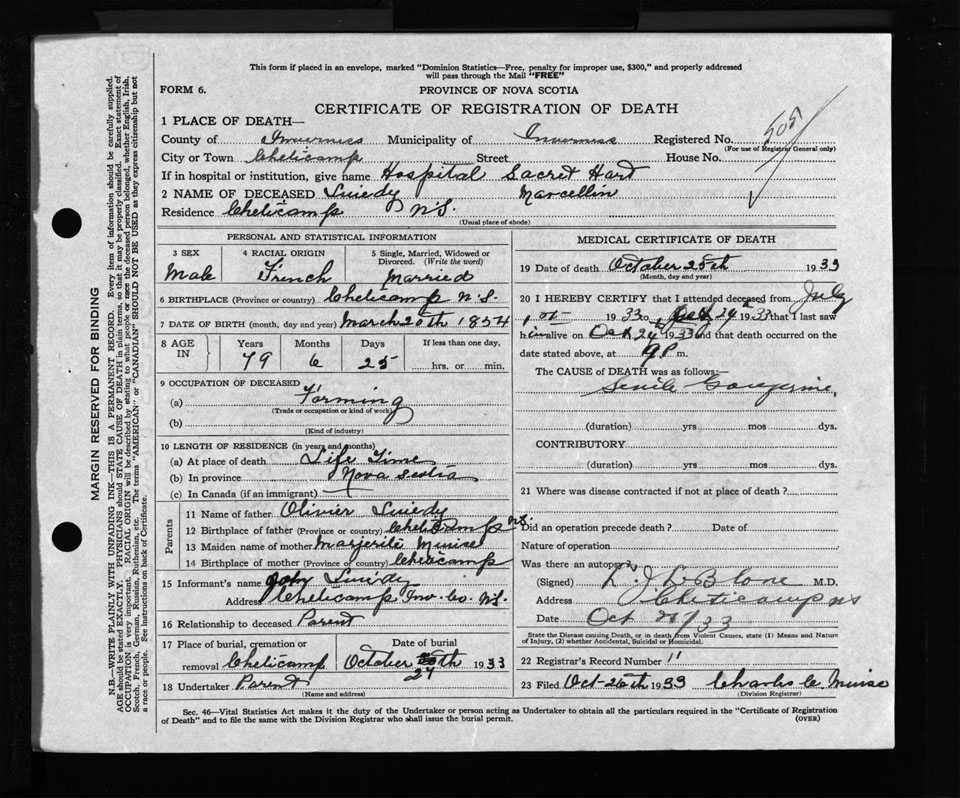 This form if placed in an envelope, marked "Dominion Statistics—Free, penalty for improper use, $300," and properly addressed
will pass through the Mail "FREE"
FORM 6.
PROVINCE OF NOVA SCOTIA
CERTIFICATE OF REGISTRATION OF DEATH
1 PLACE OF DEATH—
County of Inverness Municipality of Inverness Registered No. 505
(For use of Registrar General only)
City or Town Cheticamp Street House No.
If in hospital or institution, give name Hospital Sacred Hart
2 NAME OF DECEASED Marcellin
Residence Cheticamp N.S.
(Usual place of abode)
PERSONAL AND STATISTICAL INFORMATION
3 SEX
Male
4 RACIAL ORIGIN
French
5 Single, Married, Widowed or
Divorced. (Write the word)
Married
6 BIRTHPLACE (Province or country) Cheticamp N.S.
7 DATE OF BIRTH (month, day and year) March 20th 1854
8 AGE IN
Years 79
Months 6
Days 25
If less than one day,
hrs. or min.
9 OCCUPATION OF DECEASED
(a) Farming
(Trade or occupation or kind of work)
(b)
(Kind of industry)
10 LENGTH OF RESIDENCE (in years and months)
(a) At place of death Life Time
(b) In province Nova Scotia
(c) In Canada (if an immigrant)
Parents
11 Name of father Olivier
12 Birthplace of father (Province or country) Cheticamp N.S.
13 Maiden name of mother Marjerite
14 Birthplace of mother (Province or country) Cheticamp
15 Informant's name
Address Cheticamp Inv. Co. N.S.
16 Relationship to deceased Parent
17 Place of burial, cremation or
removal Cheticamp
Date of burial
October 27 th 1933
18 Undertaker Parent
(Name and address)
MEDICAL CERTIFICATE OF DEATH
19 Date of death October 25th 1933
(Month, day and year)
20 I HEREBY CERTIFY that I attended deceased from July
1933 to 24th 1933 that I last saw
him alive on Oct 24th 1933 and that death occurred on the
date stated above, at 9 P. m.
The CAUSE of DEATH was as follows:—
Senile Gangrene
(duration) yrs mos dys.
CONTRIBUTORY
(duration) yrs mos dys.
21 Where was disease contracted if not at place of death?
Did an operation precede death? Date of
Nature of operation
Was there an autopsy?
(Signed) M.D.
Address Cheticamp NS
Date Oct 27/33
State the Disease causing Death, or in death from Violent Causes, state (1) Means and Nature
of Injury, (2) whether Accidental, Suicidal or Homicidal.
22 Registrar's Record Number 11
23 Filed Oct-26th 1933 Charles
(Division Registrar)
Sec. 46—Vital Statistics Act makes it the duty of the Undertaker or person acting as Undertaker to obtain all the particulars required in the "Certificate of Registration
of Death" and to file the same with the Division Registrar who shall issue the burial permit.
(OVER)
MARGIN RESERVED FOR BINDING
N.B.—WRITE PLAINLY WITH UNFADING INK—THIS IS A PERMANENT RECORD. Every item of information should be carefully supplied.
AGE should be stated EXACTLY. PHYSICIANS should STATE CAUSE OF DEATH in plain terms, so that it may be properly classified. Exact statement of
OCCUPATION is very important. RACIAL ORIGIN will be described by stating to what people or race the deceased person belonged, whether English, Irish,
Scotch, French, German, Russian, Ruthenian, etc. The terms "AMERICAN" or "CANADIAN" SHOULD NOT BE USED as they express citizenship but not
a race or people. See instructions on back of Certificate.